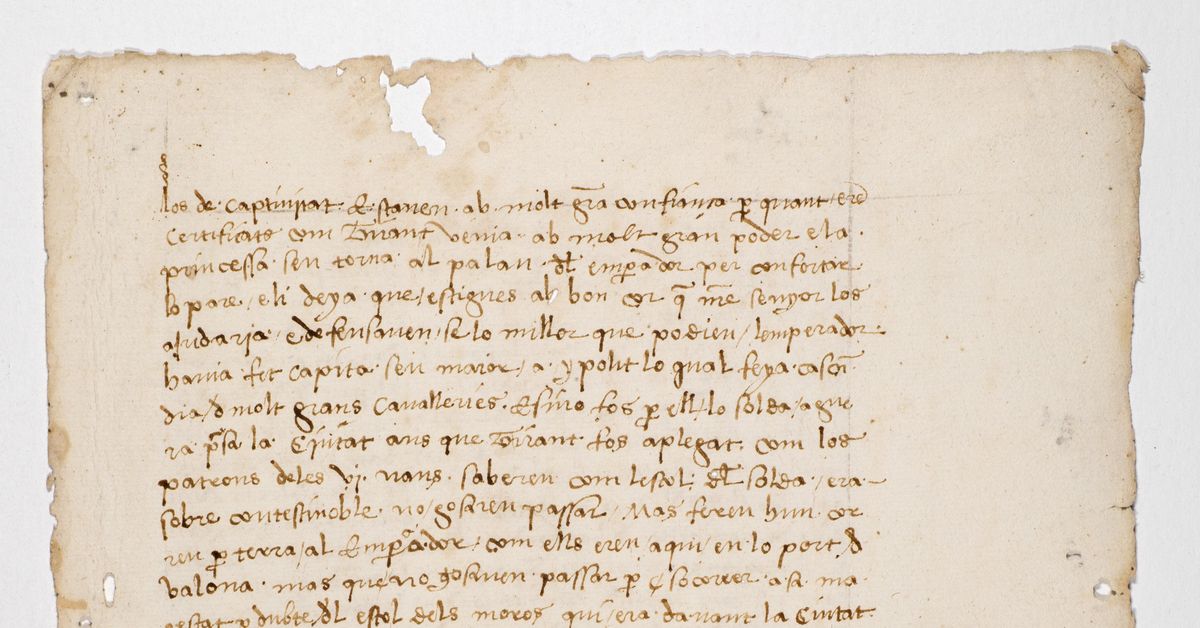 los de captiuitat · E stauen · ab · molt gra confiança · p quant · ere
certificats com Tirant venia · ab molt gran poder e la ·
princessa sen torna al palau · dl emperador per confortar
lo pare / e li deya que / estigues ab bon cor q nre senyor los
aiudaria · e defensauen · se lo millor que podien / lemperador ·
hauia fet capita seu maior / a · ypolit lo qual feya · cascu
dia / d molt grans caualleries · E sino fos p ell / lo solda / ague
ra psa la Ciutat ans que Tirant fos aplegat · com los
patrons deles vi · naus · saberen com lestol · dl solda / era
sobre contestinoble · no / gosaren passar / Mas feren hun cor
reu p terra / al Emperador / com ells eren / aqui / en lo port / d
valona · mas que no gosauen passar p socorrer · a · sa ma ·
gestat p dubte / dl estol dels moros qui / era · dauant la Ciutat